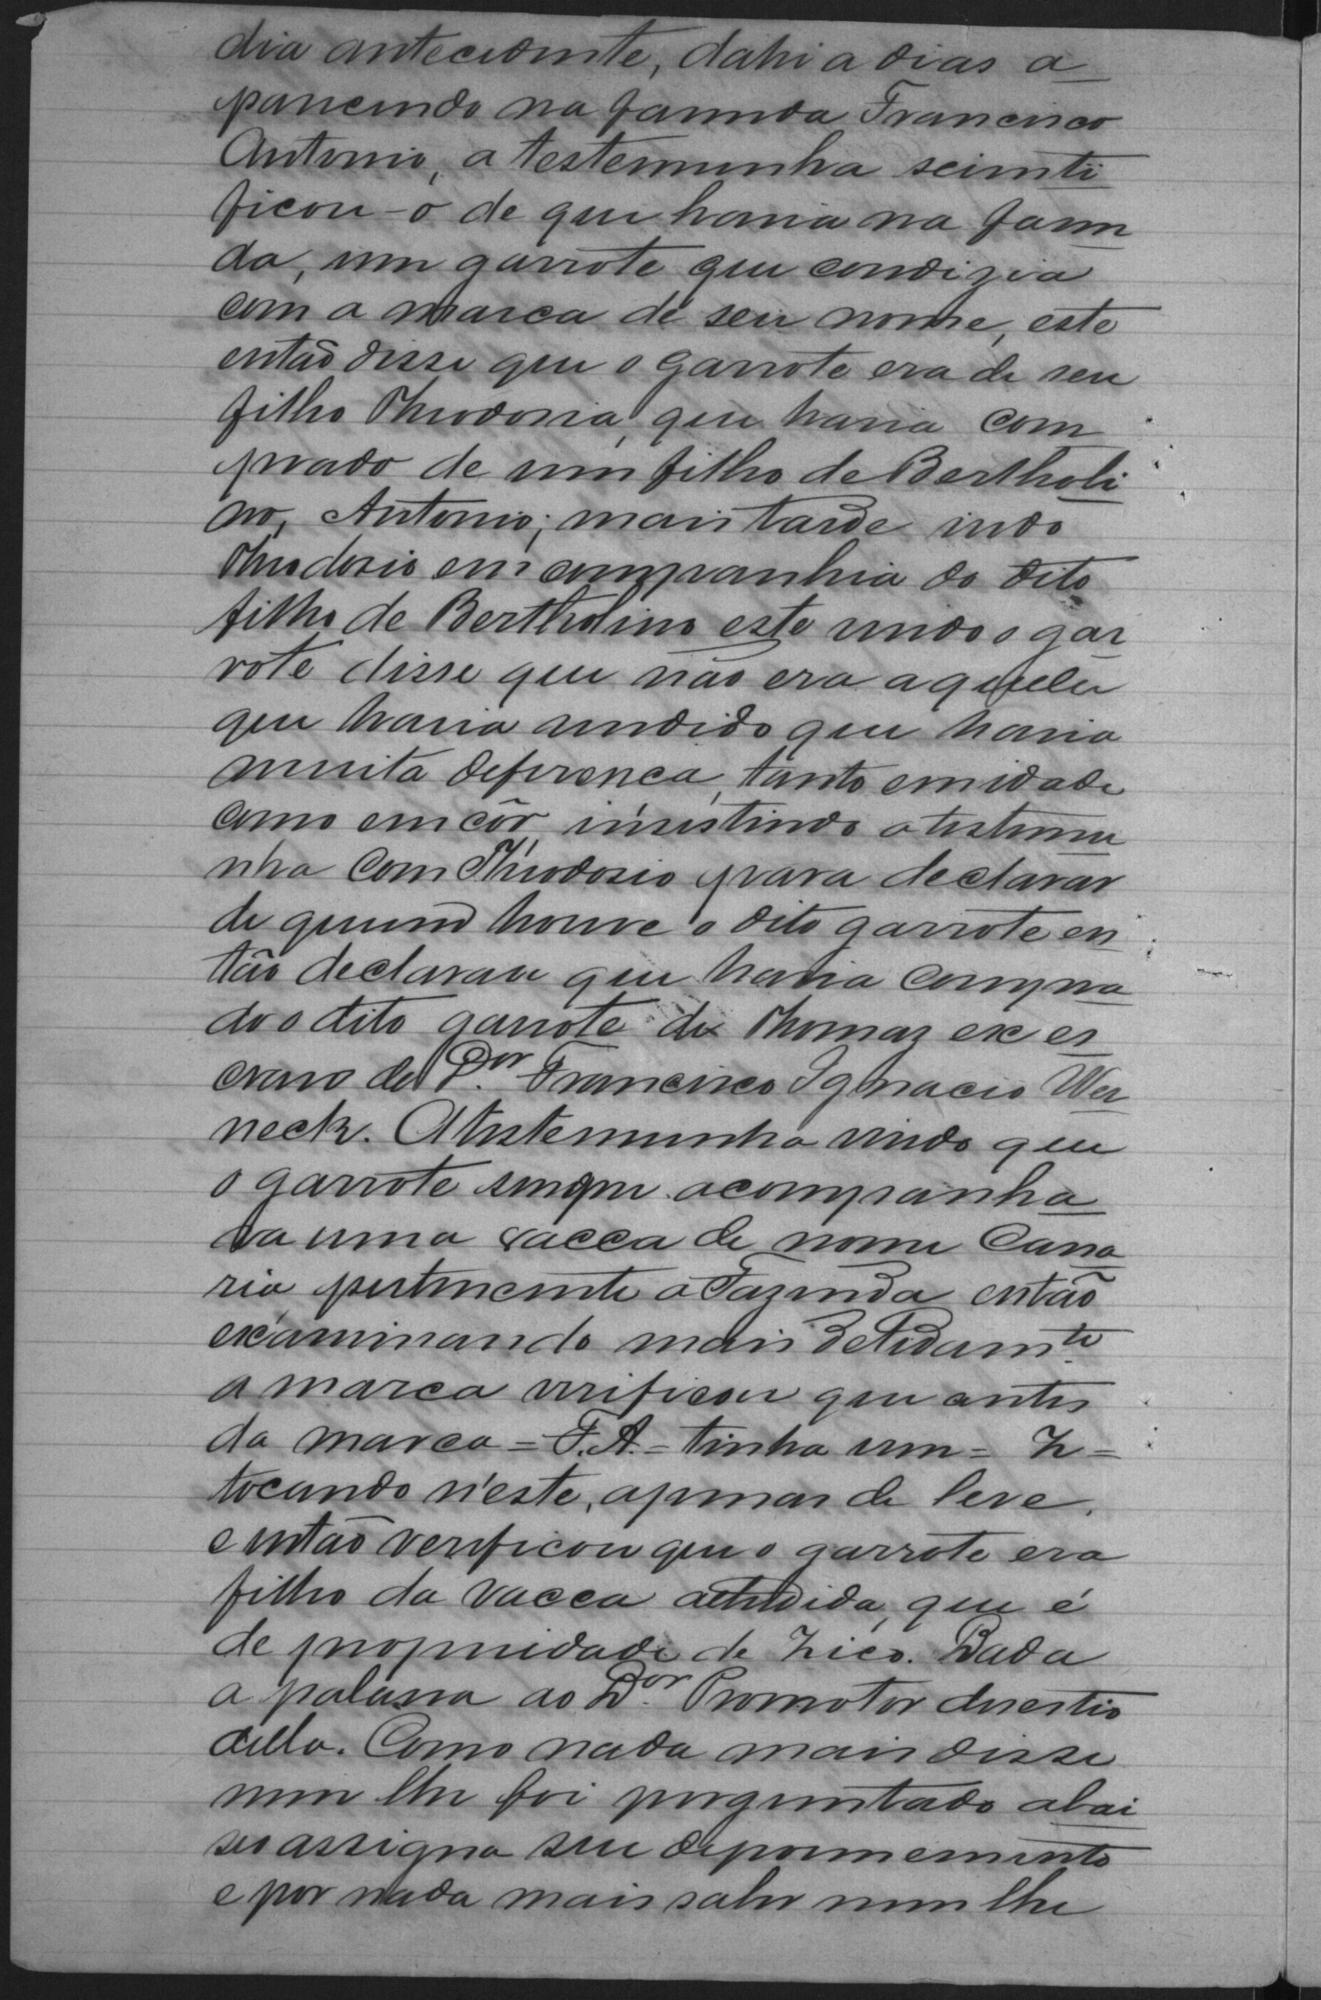 dia antecedente, dahi a dias a
parecendo na fazenda Francisco
Antonio, a testemunha scienti
ficou-o de que havia na fazen
da, um garrote que condizia
com a marca de seu nome, este
então disse que o garrote era de seu
filho Theodosio, que havia com
prado de um filho de Bertholi
no, Antonio; mais tarde indo
Theodosio em companhia do dito
filho de Bertholino este vindo o gar
rote disse que não era aquelle
que havia vendido que havia
muita deferença, tanto em idade
como em côr, insistindo a testemu
nha com Theodosio para declarar
de quem houve o dito garrote en
tão declarou que havia compra
do o dito garrote de Thomaz ex es
cravo do Dor. Francisco Ignacio Wer
neck. A testemunha vindo que
o garrote sempre acompanha
va uma vacca de nome Cana
ria pertencente a Fazenda então
examinando mais detidamte
a marca verificou que antes
da marca = F.A. = tinha um = Z =
tocando n'este, apenas de leve,
e então verificou que o garrote era
filho da vacca alludida, que é
de propriedade de Zico. Dada
a palavra ao Dor. Promotor desestio
della. Como nada mais disse
nem lhe foi perguntado abai
xo assigna seu depoimemento
e por nada mais saber nem lhe